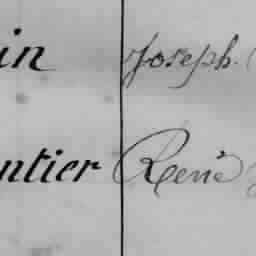 in Joseph.
ntier René